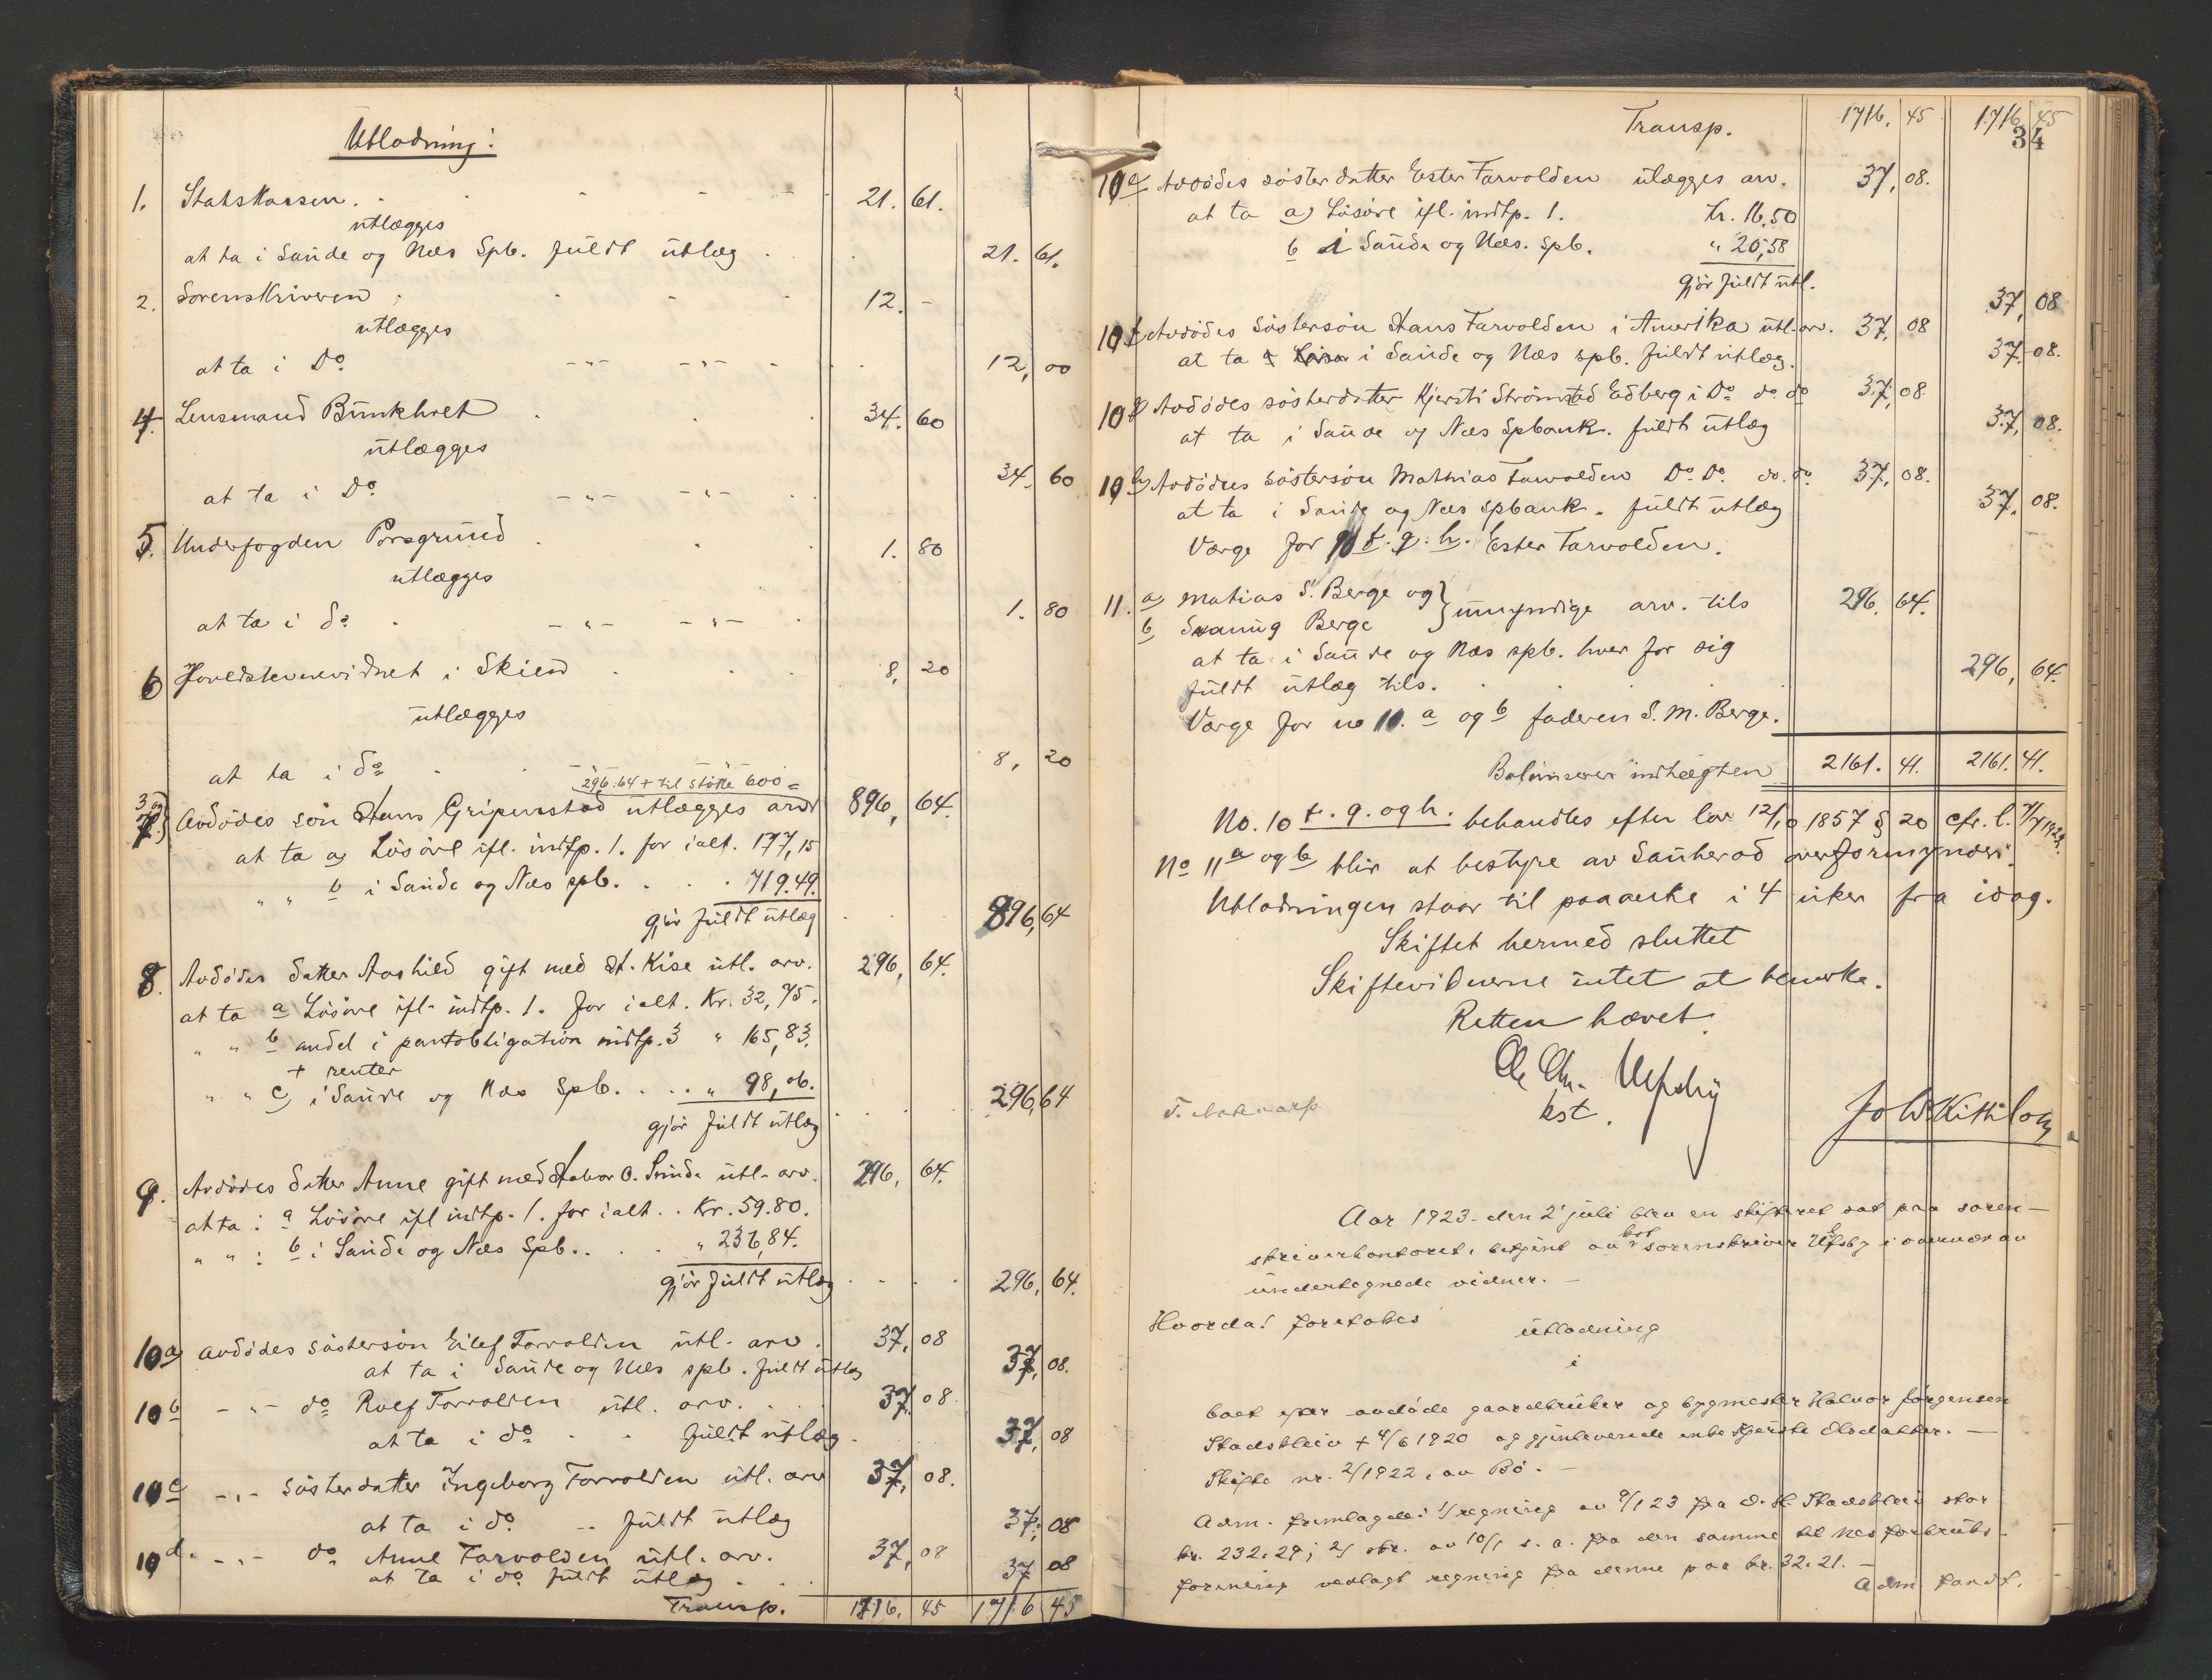 Utlodning:
1. Statskassen. 21. 61.
utlægges
at ta i Saude og Næs Spb. fuldt utlæg 21. 61.
2. Sorenskriveren 12. -
utlægges
at ta i Do -"- -"- 12, 00
4. Lensmand Bunkholt 34. 60
utlægges
at ta i Do -"- -"- 34. 60
5. Underfogden Porsgrund 1. 80
utlægges
at ta i do -"- -"- 1. 80
6 Hovedstevnevidnet i Skien 8, 20
utlægges
at ta i do 8, 20
296.64 + til støtte 600 =
3 og 7) Avdødes søn Hans Gripenstad utlægges arv 896, 64.
at ta a) Løsøre ifl. indtp. 1. for ialt. 177,15
" " b i Saude og Næs spb. . . . 719.49.
gjør fuldt utlæg 896, 64
8. Avdødes datter Aashild gift med H. Kise utl. arv. 296, 64.
at ta a Løsøre ifl. indtp. 1. for ialt. Kr. 32,75.
" " b andel i pantobligation indtp. 3 " 165,83.
+ renter
" " c) i Saude og Næs Spb. . . . " 98,06.
gjør fuldt utlæg 296, 64
9. Avdødes datter Anne gift med Halvor O. Sunde utl. arv. 296, 64.
at ta: a Løsøre ifl indtp. 1. for ialt. . Kr. 59.80.
" " : b i Saude og Næs Spb. . . . " 236,84.
gjør fuldt utlæg 296, 64.
10a) avdødes søstersøn Eilef Farvolden utl. arv. 37, 08
at ta i Saude og Næs spb. fuldt utlæg 37, 08.
10b -"- do Rolf Farvolden utl. arv. 37, 08.
at ta i do fuldt utlæg 37, 08
10c -"- søsterdatter Ingeborg Farvolden utl. arv 37, 08.
at ta i do -- fuldt utlæg 37, 08
10d. -"- do Anne Farvolden utl. arv. 37, 08
at ta i do fuldt utlæg 37 08
Transp. 1716, 45 1716 45
Transp. 1716, 45 1716, 45
34
10e) Avdødes søsterdatter Ester Farvolden utlægges arv. 37, 08.
at ta a) Løsøre ifl. indtp. 1. Kr. 16,50
b i Saude og Næs. spb. " 20,58
gjør fuldt utl. 37, 08
10f Avdødes søstersøn Hans Farvolden i Amerika utl. arv. 37, 08
at ta i Saude og Næs spb. fuldt utlæg. 37. 08.
10g) Avdødes søsterdatter Kjersti Strømstad Edberg i Do do do 37, 08.
at ta i Saude og Næs Spbank. fuldt utlæg 37, 08.
10h) Avdødes søstersøn Mathias Farvolden Do. Do. do. do. 37, 08.
at ta i Saude og Næs Spbank. fuldt utlæg 37, 08.
Værge for 10 f. g. h. Ester Farvolden.
11. a) Matias S. Berge og } umyndige arv. tils 296, 64.
b) Svanaug Berge
at ta i Saude og Næs spb. hver for sig
fuldt utlæg tils. 296, 64.
Værge for no 11. a og b faderen S. M. Berge.
Balanserer indtægten 2161. 41. 2161. 41.
No. 10 f. g. og h. behandles efter lov 12/10 1857 § 20 cfr. l.
No 11 a og b blir at bestyre av Sauherad overformynderi.
Utlodningen staar til paaanke i 4 uker fra idag.
Skiftet hermed sluttet
Skiftevidnerne intet at bemerke.
Retten hævet.
kst.
Jo W Kittilsen
Aar 1923 den 2' juli blev en skifteret sat paa soren-
skriverkontoret, betjent av kst sorenskriver Ufsby i overvær av
undertegnede vidner. -
Hvorda! foretokes
utlodning
i
boet efter avdøde gaardbruker og bygmester Halvor Jørgensen
Stadskleiv + 4/6 1920 og gjenlevende enke Kjerste Olsdatter. -
Skifte nr. 2/1922, av Bø. -
Adm. fremlagde: 1/ regning av 9/1 23 fra O. H. Stadskleiv stor
kr. 232.29; 2/ skr. av 10/1 s. a. fra den samme til Nes forbruks-
forening vedlagt regning fra denne paa kr. 32.21. -
Adm. fandt,